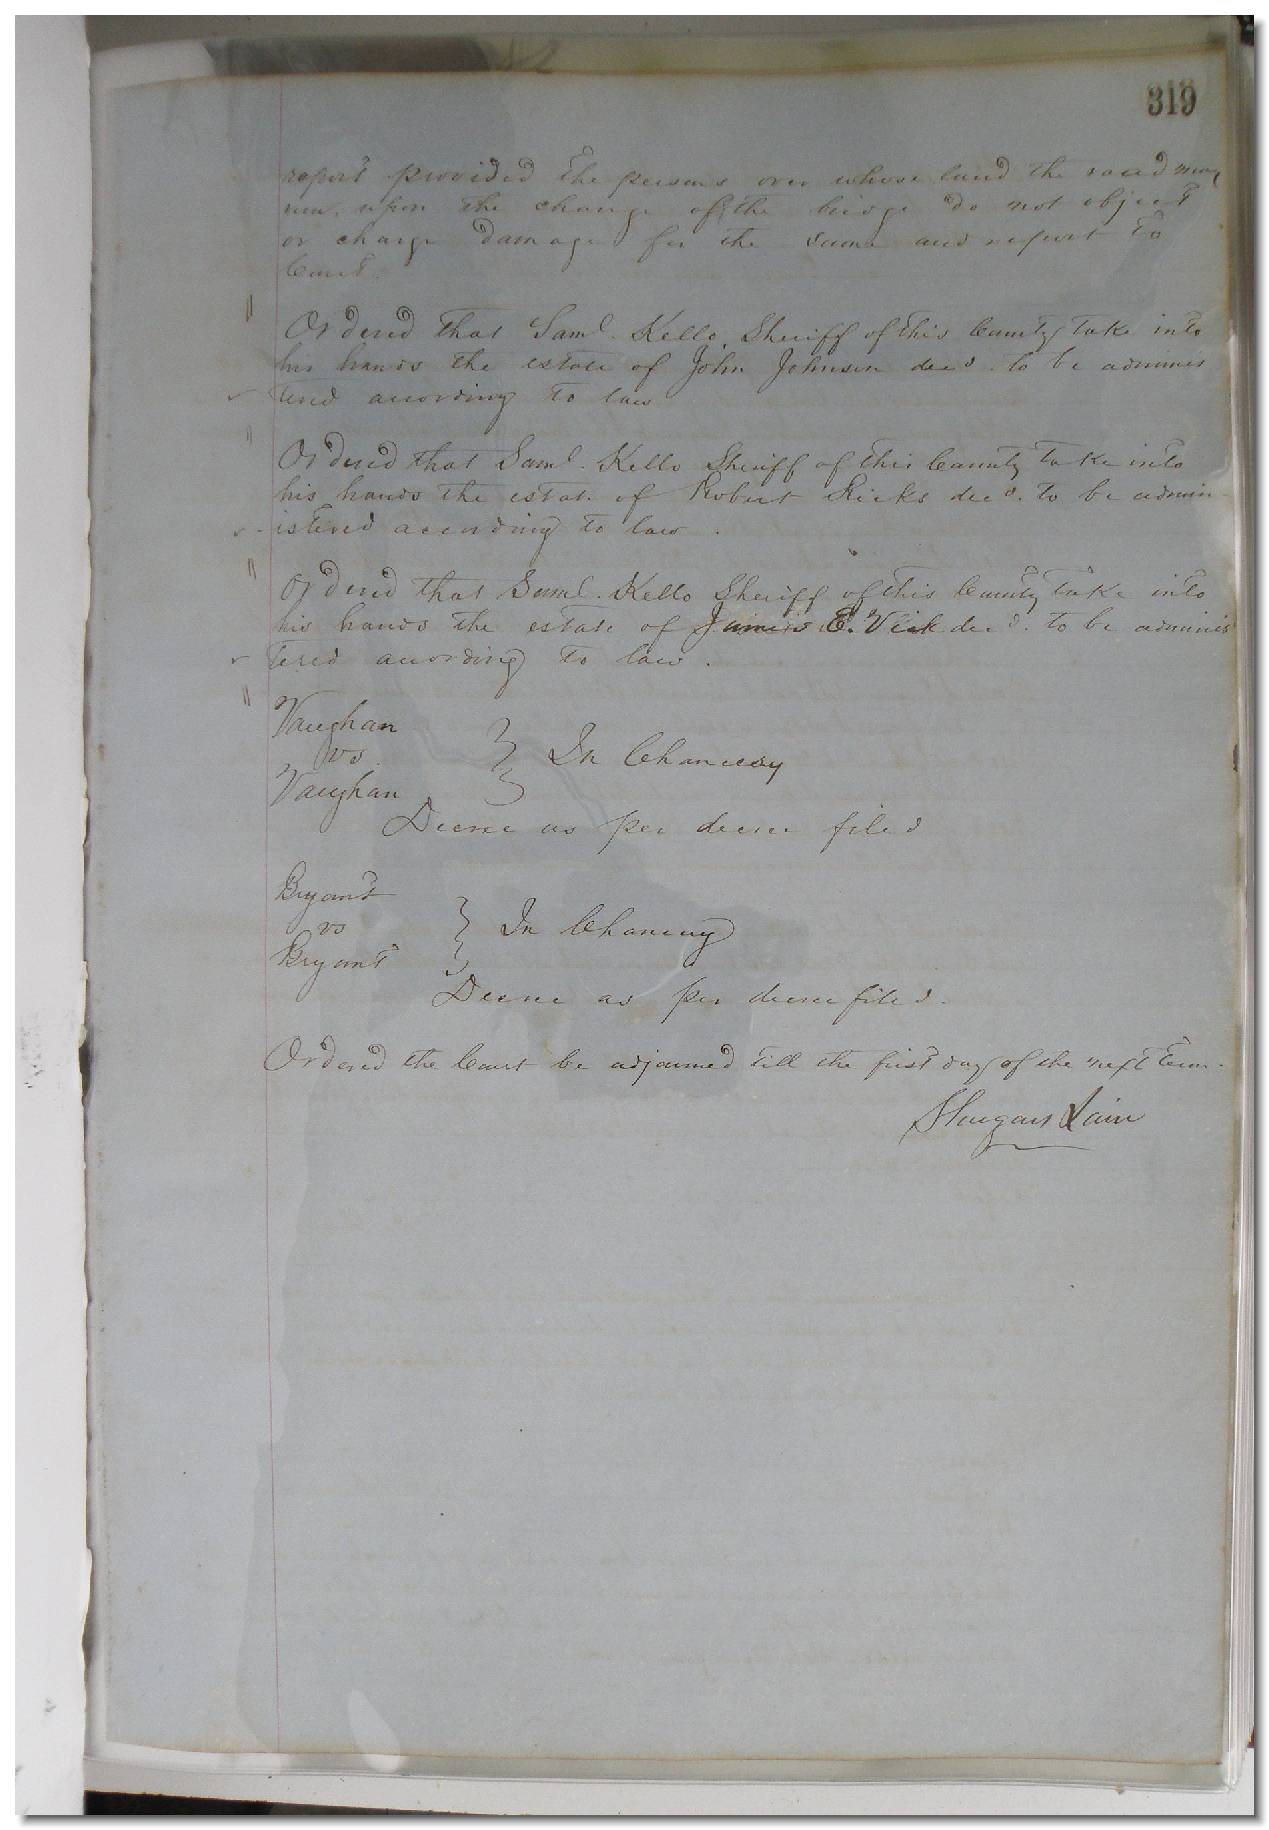 319
report provided the persons over whose land the road may
run, upon the change of the bridge do not object
or charge damage for the same and report to
Court.
Ordered that Saml. Kello, Sheriff of this County take into
his hands the estate of John Johnson decd. to be adminis
tered according to law
Ordered that Saml. Kello Sheriff of this County take into
his hands the estate of Robert Ricks decd. to be admin-
istered according to law.
Ordered that Saml. Kello Sheriff of this County take into
his hands the estate of James E. Vick decd. to be adminis
tered according to law.
Vaughan
vs.
Vaughan
} In Chancery
Decree as per decree filed
Bryant
vs
Bryant
} In Chancery
Decree as per decree filed.
Ordered the Court be adjourned till the first day of the next Term.